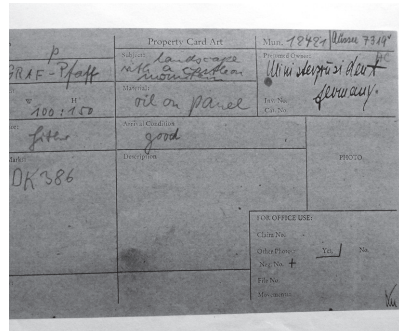 p
GRAF-Pfaff
W H
100:150
DK 386
Property Card Art
Subject: landscape
with a
mountain
Material:
oil on panel
Arrival Condition
good
Description
Mun. 18421
Presumed Owner:
Inv. No.
Cat. No.
Germany.
PHOTO:
FOR OFFICE USE:
Claim No.
Other Photos: Yes No.
Neg. No. +
File No.
Movements: